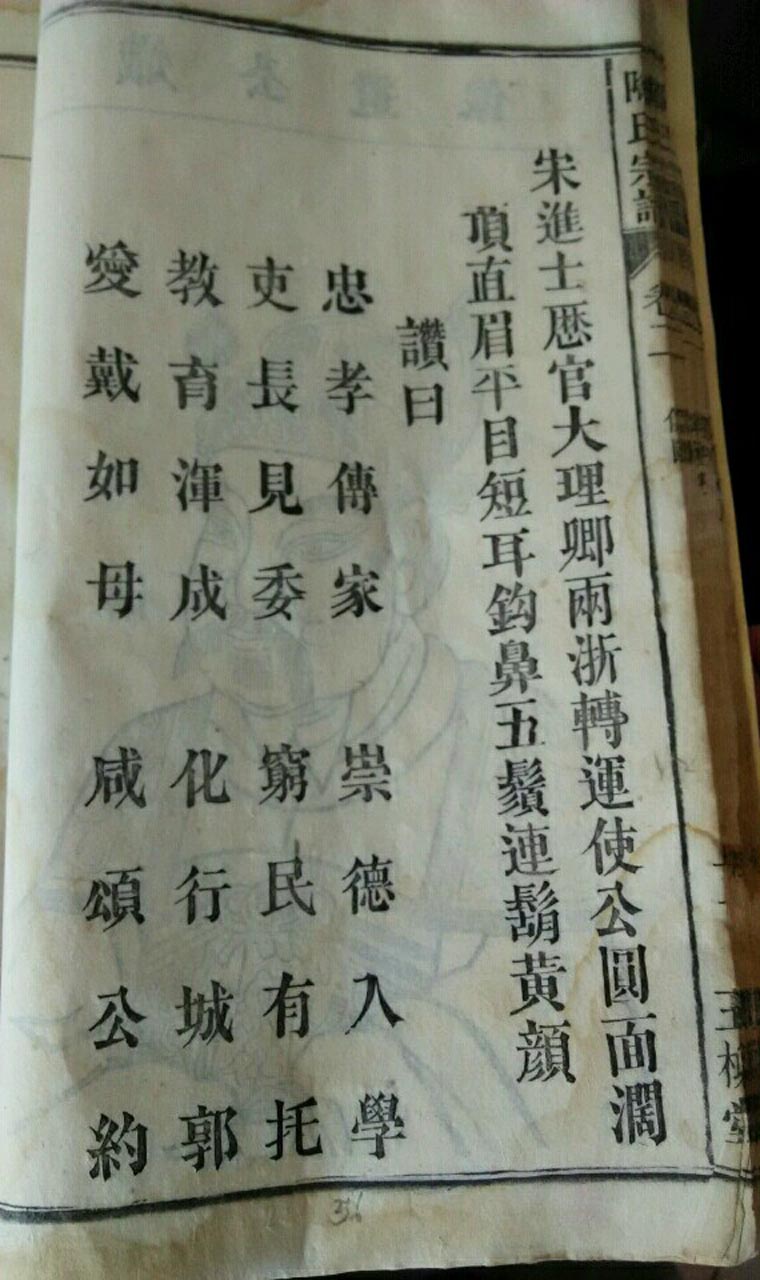 氏宗譜
卷二
宋進士歷官大理卿兩浙轉運使公圓面濶
項直眉平目短耳鈎鼻五鬚連鬍黃顔
讚曰
忠孝傳家 崇德入學
吏長見委 窮民有托
教育渾成 化行城郭
愛戴如母 咸頌公約